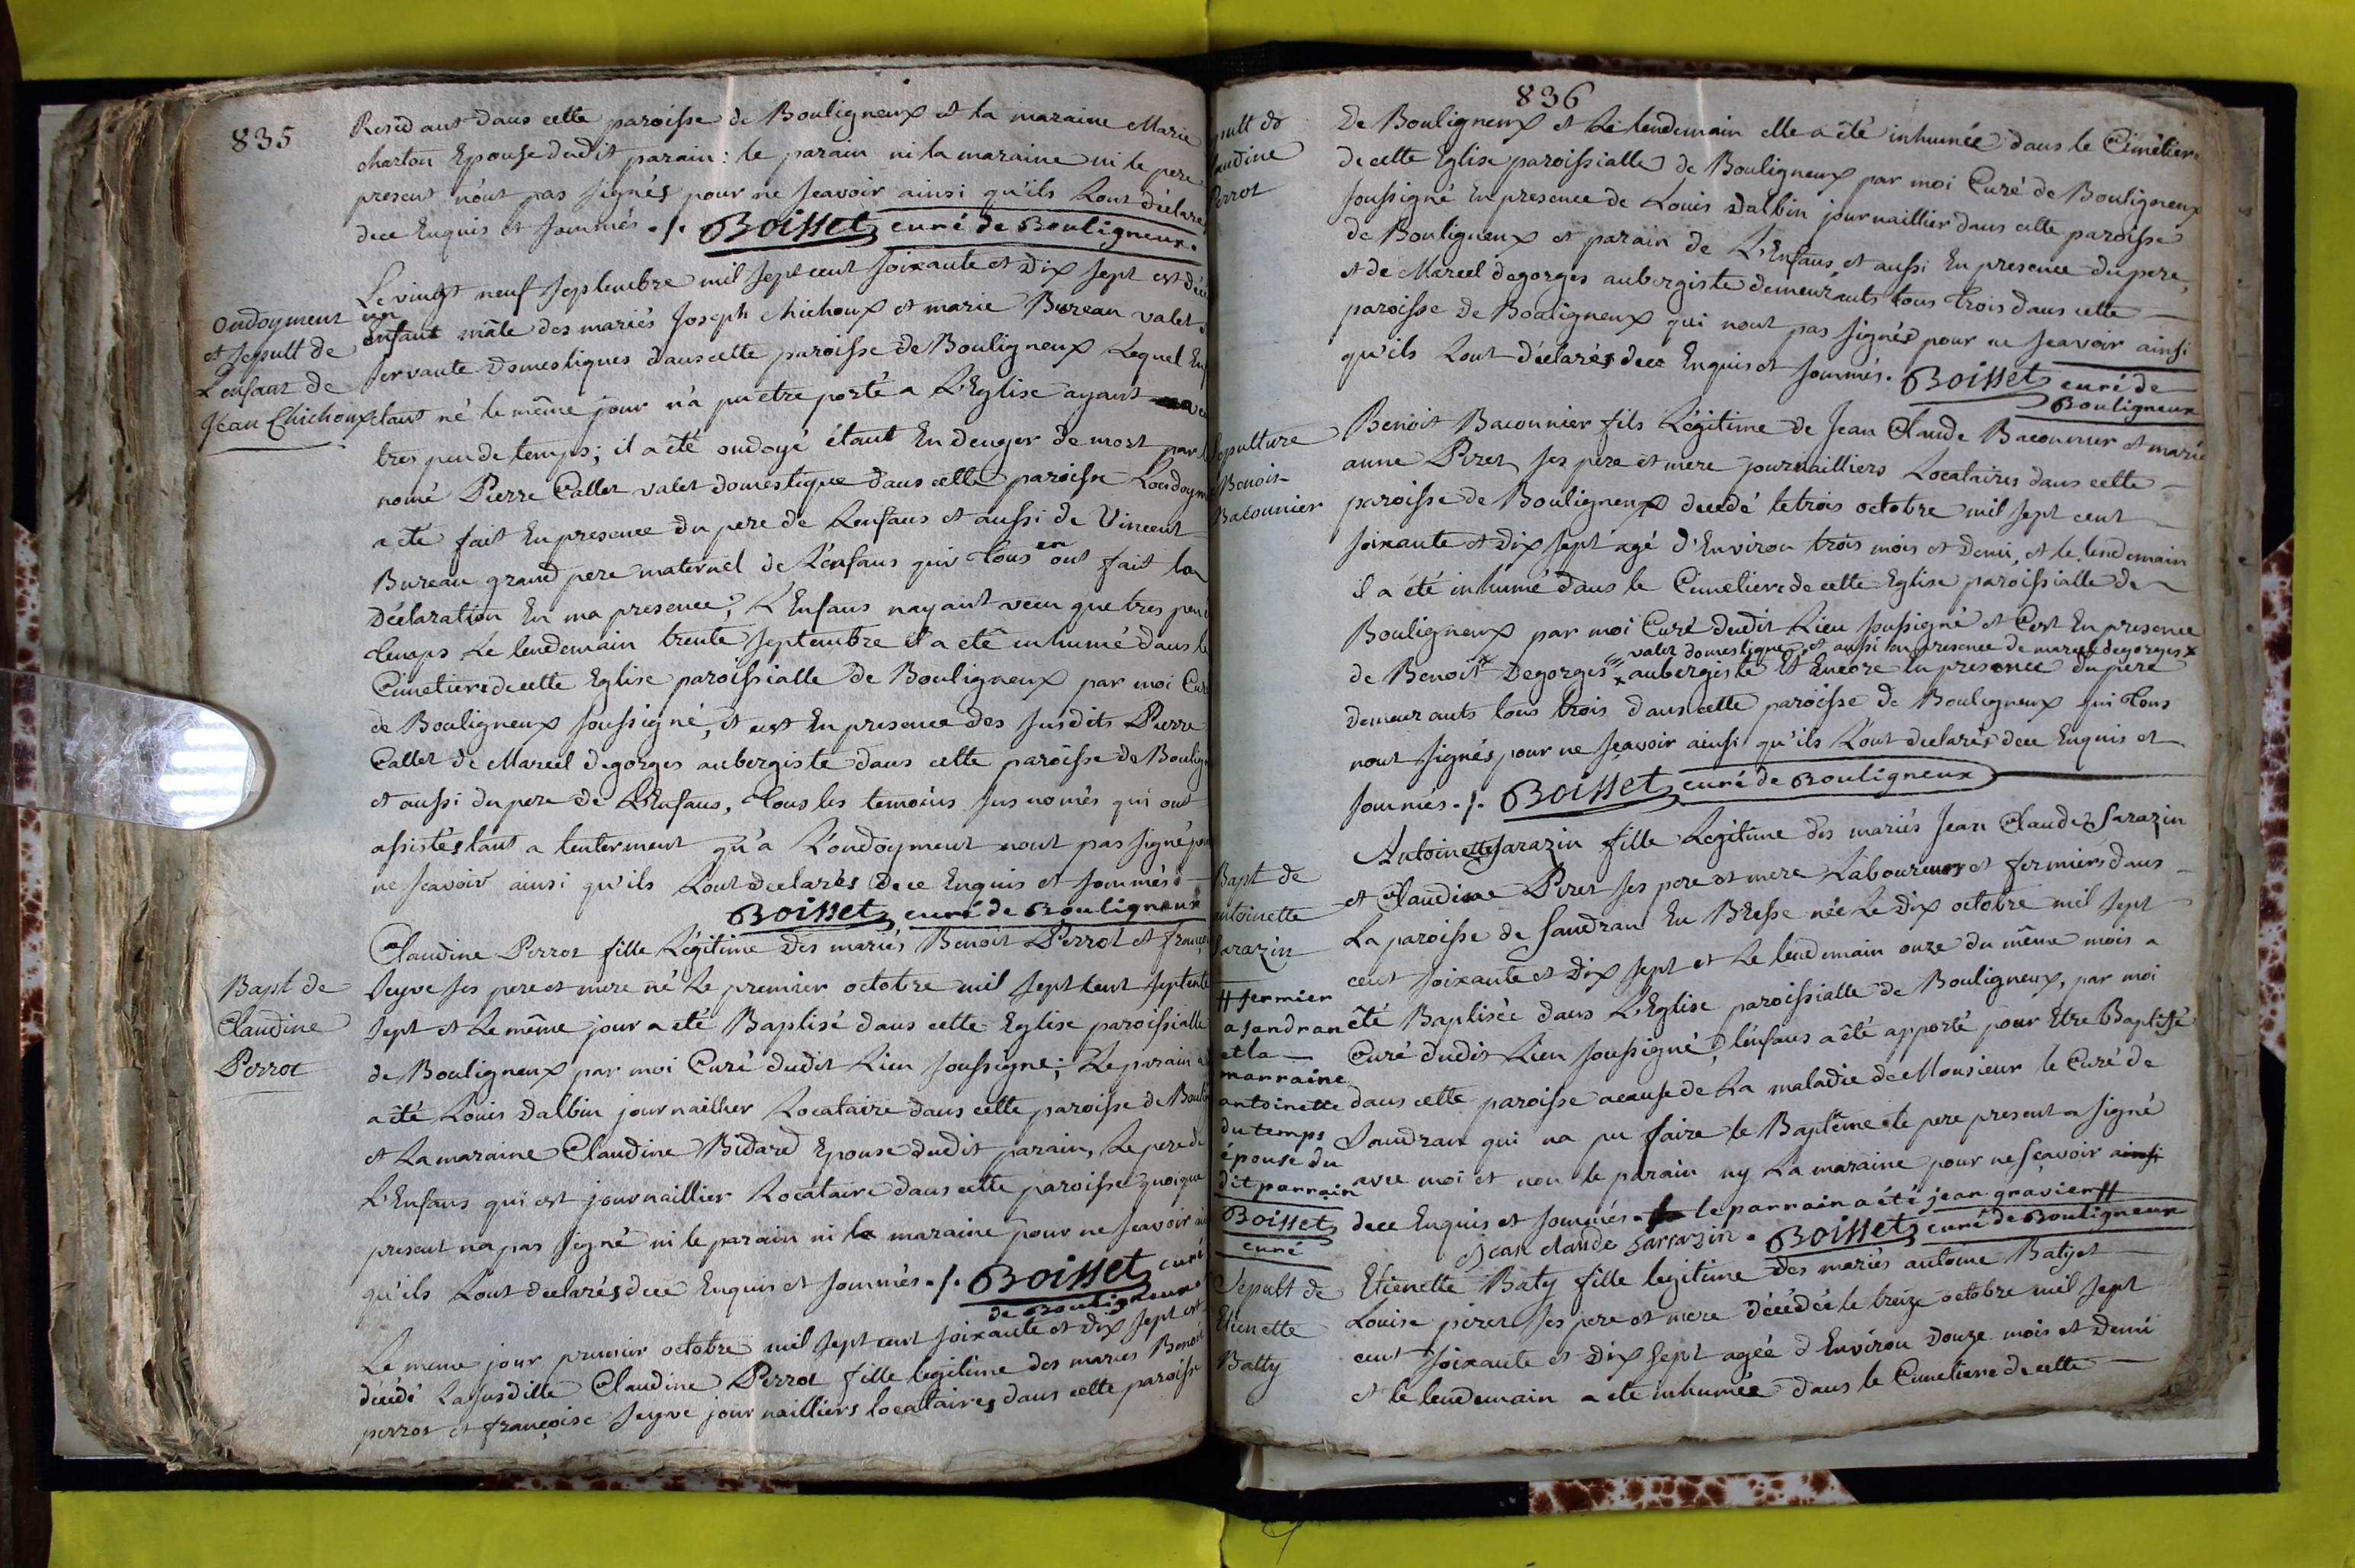 835
Residant dans cette paroisse de Bouligneux et la maraine Marie
charton Epouse dudit parain : le parain ni la maraine ni le pere
present n'ont pas signés pour ne scavoir ainsi qu'ils L'ont déclaré
dece Enquis et sommés ./. Boisset curé de Bouligneux.
ondoyment
et sepult de
L'enfant de
Jean Chichoux
Le vingt neuf septembre mil sept cent soixante et Dix sept est déce
un
Enfant mâle des mariés Joseph chichoux et marie Bureau valet
servante Domestiques dans cette paroisse de Bouligneux Lequel Enf
etant né le même jour n'a pu etre porté a L'Eglise ayant
tres peu de temps ; il a été ondoyé étant En denger de mort par
nomé Pierre Callet valet domestique dans cette paroisse Londoym
a été fait En presence du pere de Lenfans et aussi de Vincent
Bureau grand pere maternel de L'enfans qui tous en ont fait la
Déclaration En ma presence, L'Enfans nayant vecu que tres peu
temps Le lendemain trente septembre il a eté inhumé dans le
Cimetiere de cette Eglise paroissialle de Bouligneux par moi Curé
de Bouligneux soussigné, et cest En presence des susdits Pierre
Callet de Marcel degorges aubergiste dans cette paroisse de Boulign
et aussi du pere de L'Enfans, tous les temoins sus només qui ont
assistés tant a lenterment qu'a L'ondoyment nont pas signé pour
ne scavoir ainsi qu'ils Lont declarés dece Enquis et sommés
Boisset curé de Bouligneux
Bapt de
Claudine
Perrot
Claudine Perrot fille Légitime des mariés Benoit Perrot et françoi
Seyve ses pere et mere né Le premier octobre mil sept cent septente
sept et Le même jour a été Baptisé dans cette Eglise paroissialle
de Bouligneux par moi Curé dudit Lieu soussigné ; Le parain a
a été Louis Dalbin journailler Locataire dans cette paroisse de Bouli
et La maraine Claudine Bidard Epouse dudit parain, Le pere de
L'Enfans qui est journaillier Locataire dans cette paroisse quoique
present na pas signé ni le parain ni la maraine pour ne scavoir ai
qu'ils Lont declarés dece Enquis et sommés ./. Boisset curé
de Bouligneux
Le meme jour premier octobre mil sept cent soixante et dix sept est
décédé La susditte Claudine Perrot fille legitime des mariés Benoit
perrot et françoise Seyve journailliers locataires dans cette paroisse
836
sepult de
Claudine
Perrot
De Bouligneux et Le lendemain elle a été inhumée dans le Cimétiere
de cette Eglise paroissialle de Bouligneux par moi Curé de Bouligneux
soussigné En presence de Louis Dalbin journaillier dans cette paroisse
de Bouligneux et parain de L'Enfans, et aussi En presence du pere,
et de Marcel degorges aubergiste demeurants tous trois dans cette
paroisse de Bouligneux qui nont pas signés pour ne scavoir ainsi
qu'ils Lont déclarés dece Enquis et sommés. Boisset curé de
Bouligneux
Sepulture
Benoit
Baconnier
Benoit Baconnier fils Légitime de Jean Claude Baconnier et marie
anne Piret ses pere et mere journailliers Locataires dans cette
paroisse de Bouligneux decedé le trois octobre mil sept cent
soixante et Dix sept agé d'Environ trois mois et Demi, et le lendemain
il a été inhumé dans le Cimetiere de cette Eglise paroissialle de
Bouligneux par moi Curé dudit Lieu soussigné et C'est En presence
valet domestique, et aussi en presence de marcel degorges x
de Benoit Degorges x aubergiste Et Encore En presence du pere
demeurants tous trois dans cette paroisse de Bouligneux qui tous
nont signés pour ne scavoir ainsi qu'ils L'ont declarés dece Enquis et
sommés ./. Boisset curé de Bouligneux
Bapt de
antoinette
Sarazin
Antoinette Sarazin fille Legitime des mariés Jean Claude Sarazin
et Claudine Piret ses pere et mere Laboureurs et fermiers dans
La paroisse de Sandran En Bresse née Le Dix octobre mil sept
cent soixante et Dix sept et Le lendemain onze du même mois a
été Baptisée dans L'Eglise paroissialle de Bouligneux, par moi
Curé dudit Lieu soussigné, l'enfans a été apporté pour Etre Baptisé
dans cette paroisse a cause de La maladie de Monsieur le Curé de
Sandran qui na pu faire le Baptême le pere present a signé
avec moi et non le parain ny La maraine pour ne scavoir ainsi
dece Enquis et sommés. le parrain a été jean gravier #
# fermier
a sandran
et la
marraine
antoinette
du temps
épouse du
dit parrain
Boisset
curé
Jean claude Sarrazin. Boisset curé de Bouligneux
Sepult de
Etienette
Batty
Etienette Baty fille legitime des mariés antoine Baty et
Louise piret ses pere et mere décédée le treize octobre mil sept
cent soixante et Dix sept agéé d'Environ Douze mois et Demi
et le lendemain a été inhumée dans le Cimetiere de cette